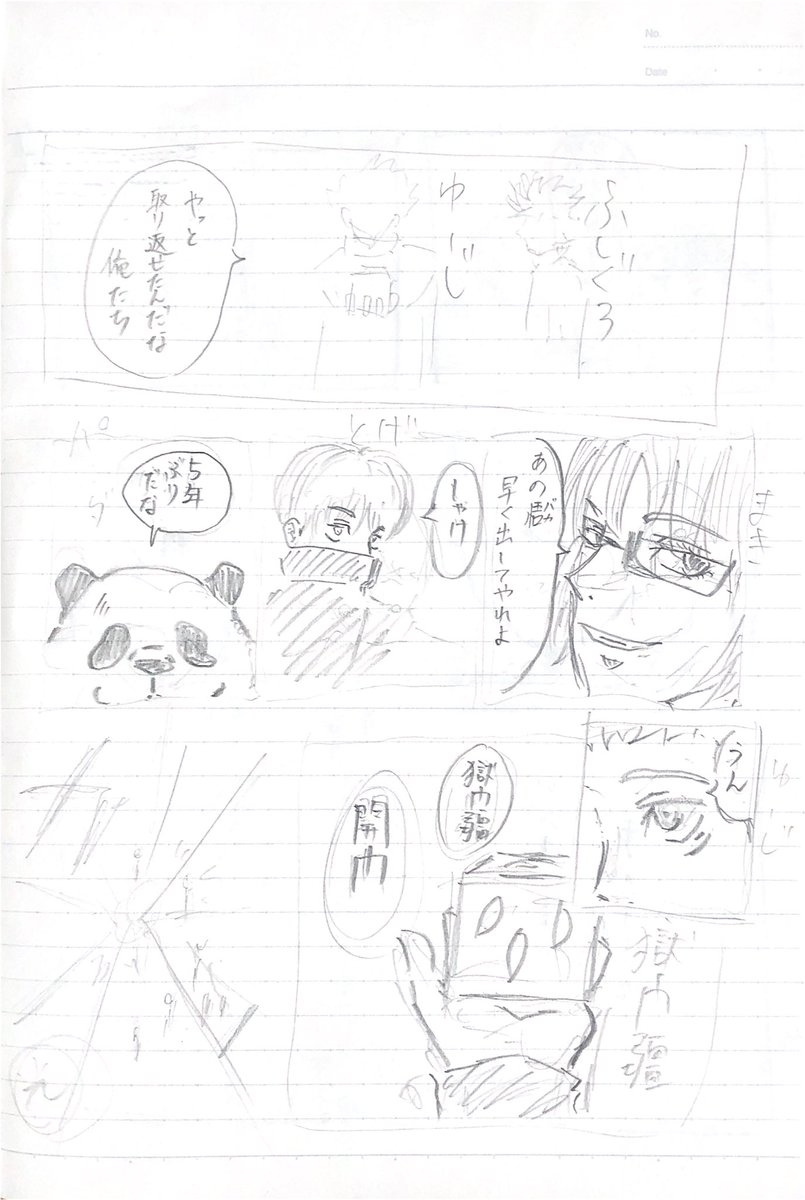 No.
Date
ふしぐろ
ゆーじ
やっと
取り返せたんだな
俺たち
まき
あの
バカ
早く出してやれよ
とげ
しゃけ
パ
5年
ぶり
だな
ゆーじ
うん
獄門疆
獄門疆
開門